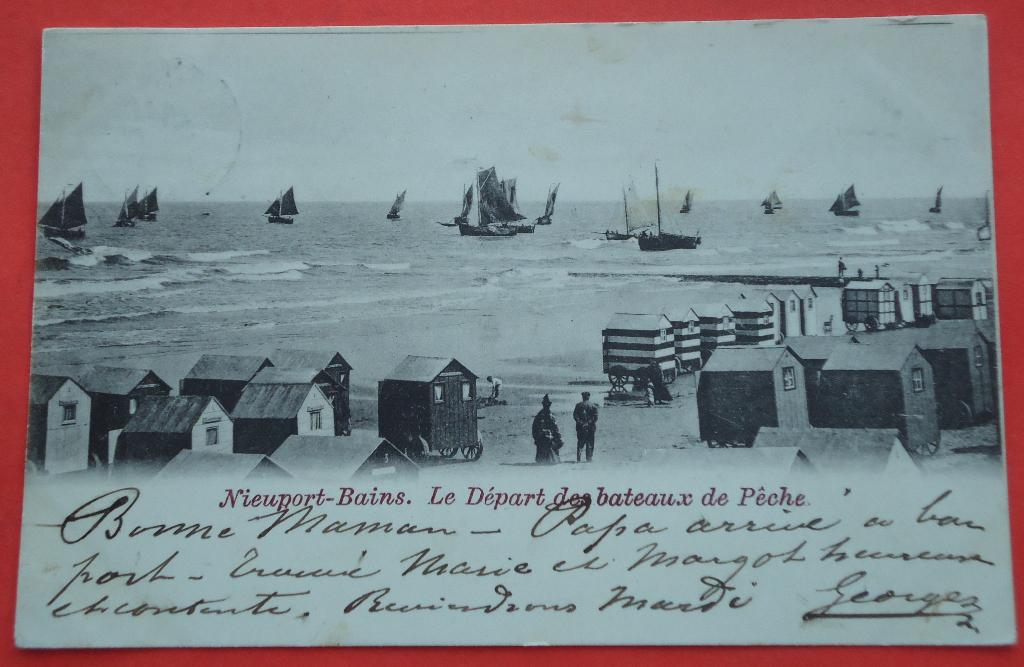 Nieuport-Bains. Le Départ des bateaux de Pêche.
Bonne Maman - Papa arrivé à bon
port - Trouvé Marie et Margot heureuse
et contente. Reviendrons Mardi Georges